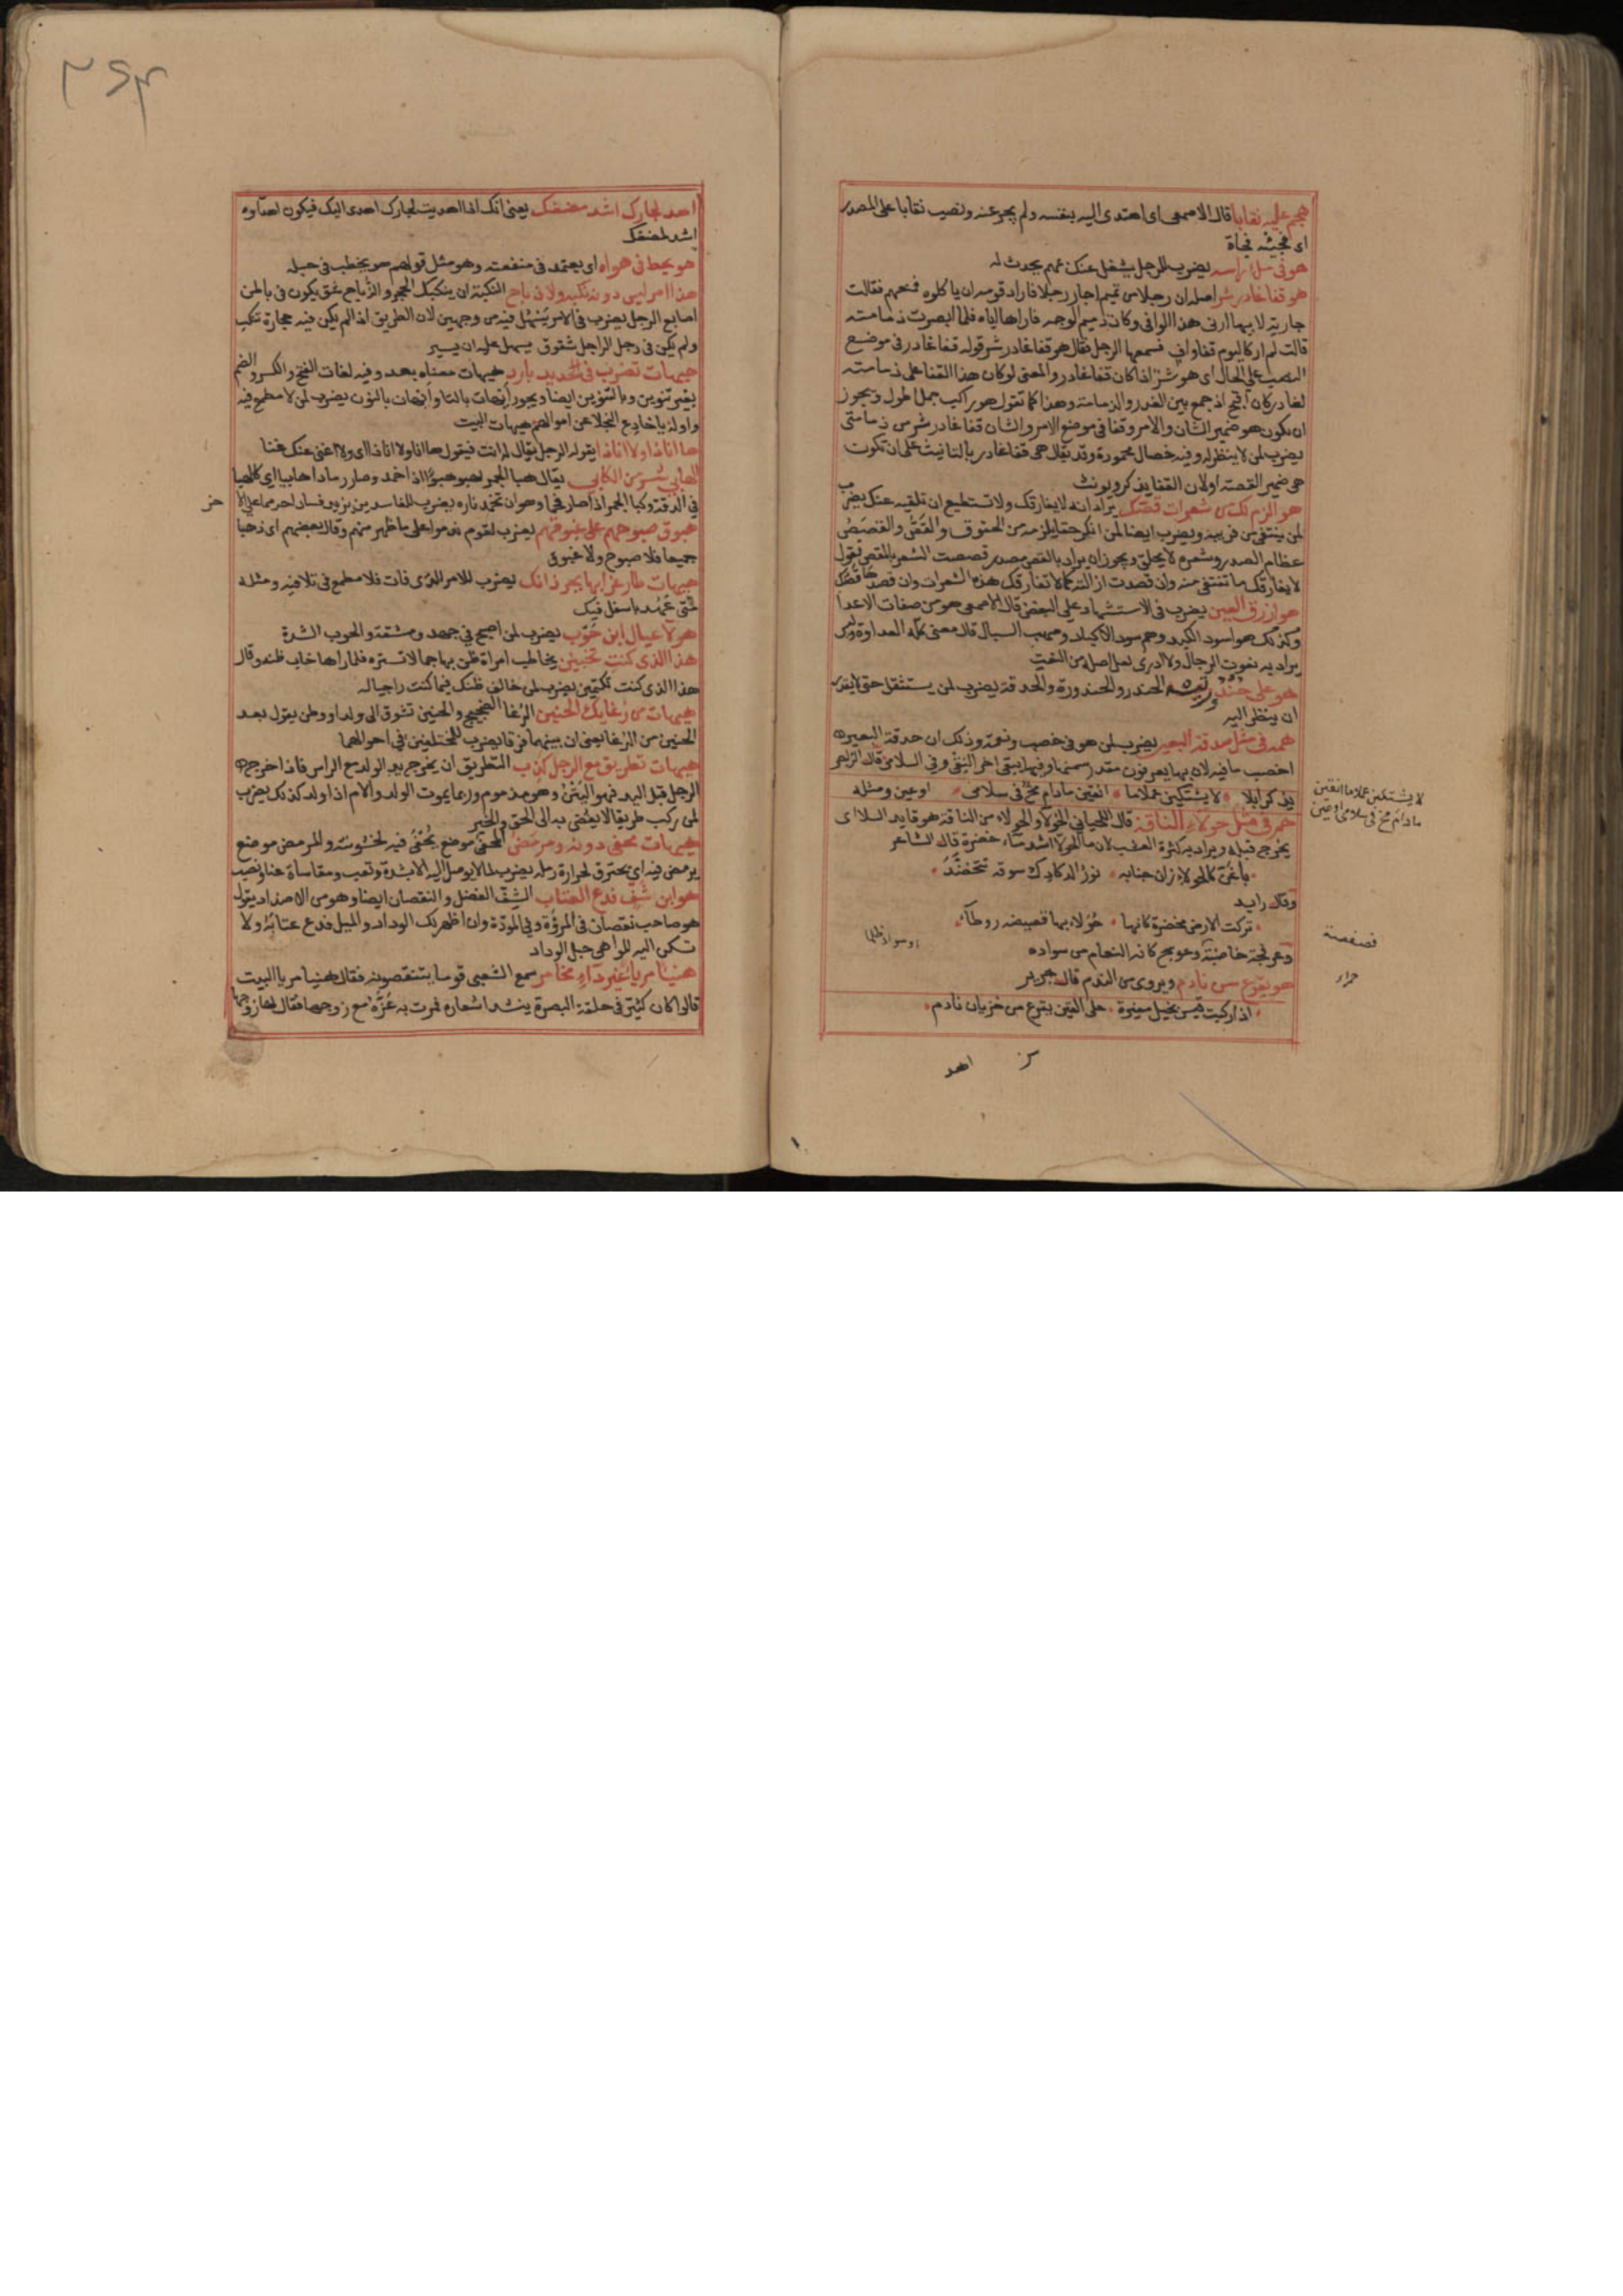 هجم عليه نقابا قال الاصمعي اى اهتدى اليه بنفسه ولم يجز عنه ونصب نقابا على المصدر
اى فجئته فجاة
هو فى ملء راسه يضرب للرجل يشغل عنك بهم يحدث له
هو قفا غادر شر اصله ان رجلا من تميم اجار رجلا فاراد قومه ان ياكلوه فمنعهم فقالت
جارية لابيها ارنى هذا الوافى وكان دميم الوجه فاراها اياه فلما ابصرت دمامته
قالت لم ار كاليوم قفا واف فسمعها الرجل فقال هو قفا غادر شر قوله قفا غادر فى موضع
النصب على الحال اى هو شر اذا كان قفا غادر والمعنى لو كان هذا القفا على دمامته
لغادر كان اقبح اذ جمع بين الغدر والدمامة وهذا كما تقول هو راكب جمل اطول ويجوز
ان يكون هو ضمير الشان والامر وقفا فى موضع الامر والشان قفا غادر شر من دمامتى
يضرب لمن لا ينظر له وفيه خصال محمودة وقد يقال هى قفا غادر بالتانيث على ان تكون
هى ضمير القصة او لان القفا يذكر ويونث
هو الزم لك من شعرات قصك يراد انه لا يفارقك ولا تستطيع ان تلقيه عنك يضرب
لمن ينتفى من قريبه ويضرب ايضا لمن انكر حقا يلزمه من الحقوق والقص والقصص
عظام الصدر وشعره لا يحلق ويجوز ان يراد بالقص مصدر قصصت الشعر بالمقص يقول
لا يفارقك ما تنتفى منه وان قصدت ازالته كما لا تفارقك هذه الشعرات وان قصدها قصك
هو ازرق العين يضرب فى الاستشهاد على البغض قال الاصمعى هو من صفات الاعدا
وكذلك هو اسود الكبد وهم سود الاكباد وصهب السبال قال معنى كله العداوة وليس
يراد به نعوت الرجال ولا ادرى لعل اصله من النعت
هو على حندر عينه الحندر والحندورة والحدقة يضرب لمن يستثقل حتى لا يقدر
ان ينظر اليه
هم فى مثل حدقة البعير يضرب لمن هو فى خصب ونعمة وذلك ان حدقة البعير
اخصب ما فيه لان بها يعرفون مقدار سمنها وفيها يبقى اخر النقى وفى السلامى قال الراجز
يذكر ابلا لا يشتكين عملا ما انقين مادام مخ فى سلامى او عين ومثله
هم فى مثل حولاء الناقة قال اللحيانى الحولاء والحولاء من الناقة هو قايد السلا اى
يخرج قبله ويراد به كثرة العشب لان ماء الحولاء اشد ماء خضرة قال الشاعر
باغن كالحولاء زان جنابه نور الدكادك سوقه تتخضد
وقال رايد
تركت الارض مخضرة كانها حولاء بها قصيصة روطاء
وعرفجة خاضبة وعوسج كانه النعام من سواده
هو يقرع سن نادم ويروى من الندم قال جرير
اذا ركبت قيس بخيل مغيرة على القين يقرع سن خزيان نادم
لا يشتكين عملا ما انقين
مادام مخ فى سلامى او عين
اهد
اهد لجارك اشد لمضغك يعنى انك اذا اهديت لجارك اهدى اليك فيكون اهداؤه
اشد لمضغك
هو يحط فى هواه اى يعتمد فى منفعته وهو مثل قولهم هو يحطب فى حبله
هذا امر ليس دونه نكبة ولا ذباح النكبة ان ينكبك الحجر والذباح شق يكون فى باطن
اصابع الرجل يضرب فى الامر يسهل فيه من وجهين لان الطريق اذا لم يكن فيه حجارة تنكب
ولم يكن فى رجل الراجل شقوق يسهل عليه ان يسير
هيهات تضرب فى حديد بارد هيهات معناه بعد وفيه لغات الفتح والكسر والضم
بغير تنوين وبالتنوين ايضا ويجوز ايهات بالتا وايهان بالنون يضرب لمن لا مطمع فيه
واوله يا خادع البخلا عن اموالهم هيهات البيت
ها انا ذا ولا انا ذا يقوله الرجل يقال له انت فيقول ها انا ولا انا ذا اى ولا اغنى عنك غنا
الهابى شر من الكابى يقال هبا الجمر يهبو هبوا اذا خمد وصار رمادا هابيا اى كالهبا
فى الدقة وكبا الجمر اذا صار فحما وهو ان تخمد ناره يضرب للفاسدين يزيد فساد احدهما على الاخر
غبوق صبوحهم على غبوقهم يضرب لقوم ندموا على ما ظهر منهم وقال بعضهم اى ذهبا
جميعا فلا صبوح ولا غبوق
هيهات طار غرابها بجرذانك يضرب للامر الذى فات فلا مطمع فى تلافيه ومثله
متى عهدك باسفل فيك
هولا عيال ابن حوب يضرب لمن اصبح فى جهد ومشقة والحوب الشدة
هذا الذى كنت تخبين يخاطب امراة ظن بها جمالا تستره فلما راها خاب ظنه وقال
هذا الذى كنت تكتمين يضرب لمن خالف ظنك فيما كنت راجيا له
هيهات من رغايك الحنين الرغا الضجيج والحنين تشوق الى ولد او وطن يقول بعد
الحنين من الرغا يعنى ان بينهما فرقا يضرب للمختلفين فى احوالهما
هيهات تطريق مع الرجل كذب التطريق ان يخرج يد الولد مع الراس فاذا خرج
الرجل قبل اليد فهو اليتن وهو مذموم وربما يموت الولد والام اذا ولد كذلك يضرب
لمن ركب طريقا لا يفضى به الى الحق والخير
هيهات محفى دونه ومرمض المحفى موضع يحفى فيه لخشونته والمرمض موضع
يرمض فيه اى يحترق لحرارة رمله يضرب لما لا يوصل اليه الا بشدة وتعب ومقاساة عنا ونصب
هو ابن شف فدع العتاب الشف الفضل والنقصان ايضا وهو من الاضداد يقول
هو صاحب نقصان فى المروة وفى المودة وان اظهر لك الوداد والميل فدع عتابه ولا
تسكن اليه للواهى حبل الوداد
هنيئا مريا غير داء مخامر سمع الشعبى قوما ينتقصونه فقال هنيا مريا البيت
قالوا كان كثير فى حلقة البصرة ينشد اشعاره فمرت به عزة مع زوجها فقال لها زوجها